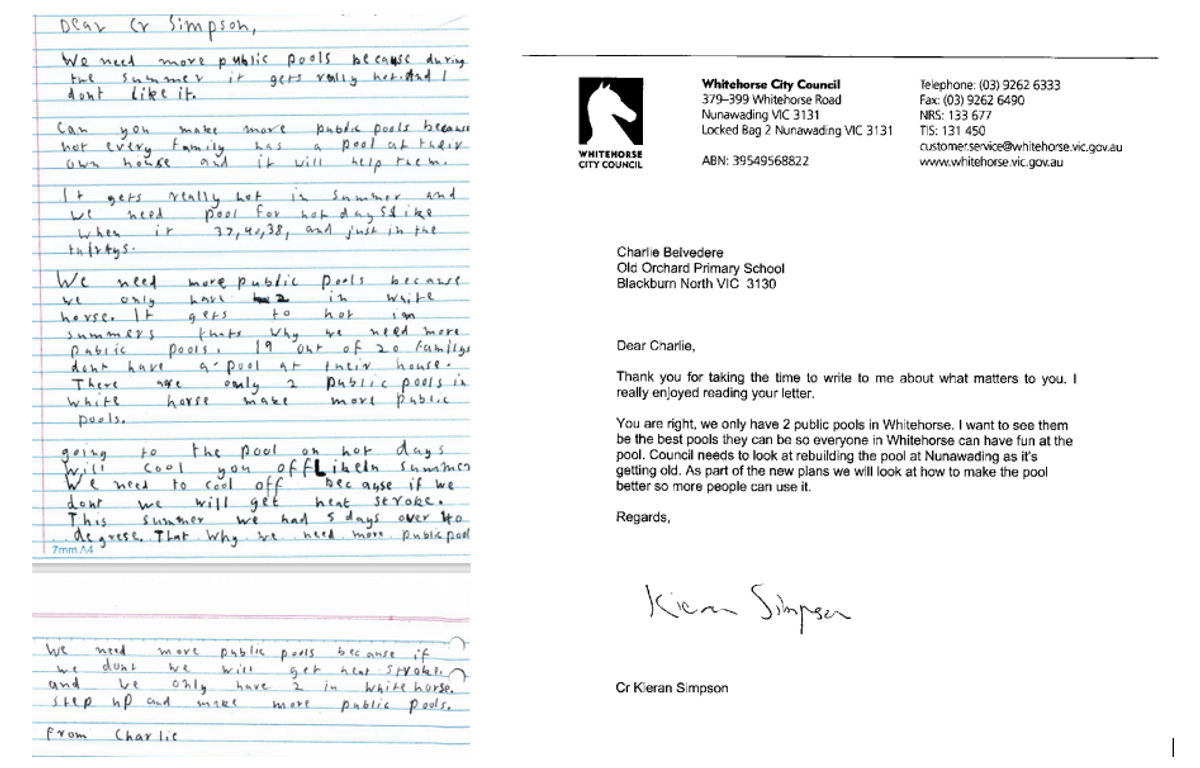 Dear Cr Simpson,
We need more public pools because during
the summer it gets really hot. And I
dont like it.
Can you make more public pools because
not every family has a pool at their
own house and it will help them.
It gets really hot in summer and
we need pool for hot days like
when it 37, 40, 38, and just in the
thirtys.
We need more public pools because
we only have 2 in white
horse. It gets to hot in
summers thats why we need more
public pools. 19 out of 20 familys
dont have a pool at their house.
There are only 2 public pools in
white horse make more public
pools.
going to the pool on hot days
will cool you off Like In summer
We need to cool off because if we
dont we will get heat stroke.
This summer we had 5 days over 40
degrese. That why we need more public pool
7mm A4
We need more public pools because if
we dont we will get heat stroke.
and we only have 2 in white horse.
step up and make more public pools.
From Charlie
WHITEHORSE
CITY COUNCIL
Whitehorse City Council
379–399 Whitehorse Road
Nunawading VIC 3131
Locked Bag 2 Nunawading VIC 3131
ABN: 39549568822
Telephone: (03) 9262 6333
Fax: (03) 9262 6490
NRS: 133 677
TIS: 131 450
customer.service@whitehorse.vic.gov.au
www.whitehorse.vic.gov.au
Charlie Belvedere
Old Orchard Primary School
Blackburn North VIC 3130
Dear Charlie,
Thank you for taking the time to write to me about what matters to you. I
really enjoyed reading your letter.
You are right, we only have 2 public pools in Whitehorse. I want to see them
be the best pools they can be so everyone in Whitehorse can have fun at the
pool. Council needs to look at rebuilding the pool at Nunawading as it's
getting old. As part of the new plans we will look at how to make the pool
better so more people can use it.
Regards,
Kieran Simpson
Cr Kieran Simpson